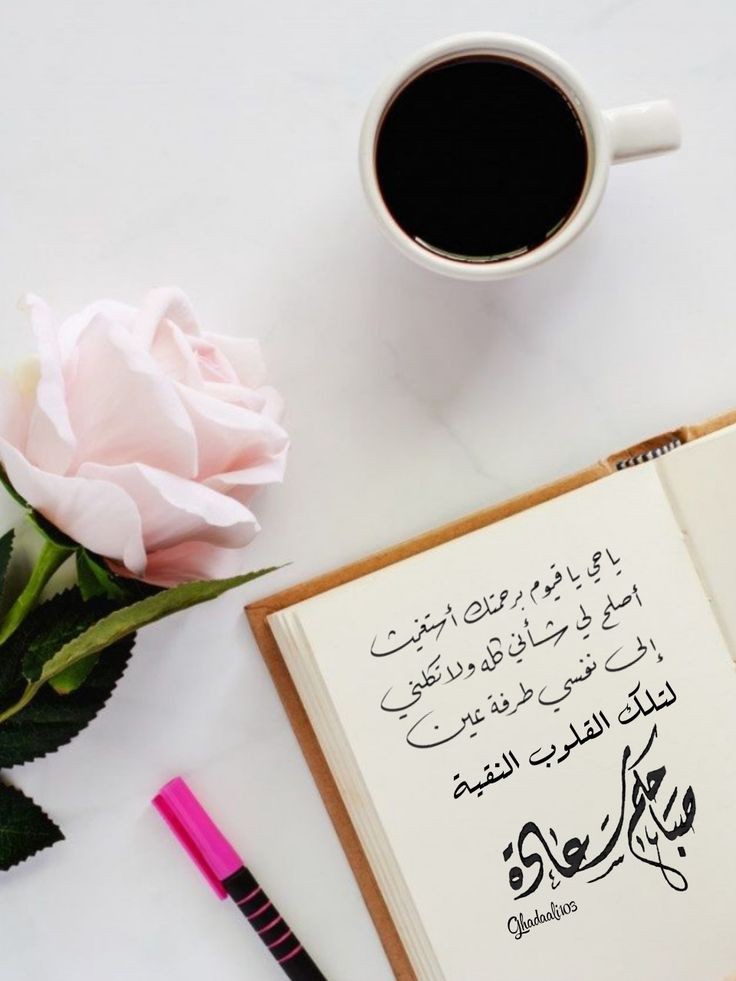 يا حي يا قيوم برحمتك أستغيث
أصلح لي شأني كله ولا تكلني
إلى نفسي طرفة عين
لتلك القلوب النقية
صباحكم سعادة
Ghadaali103